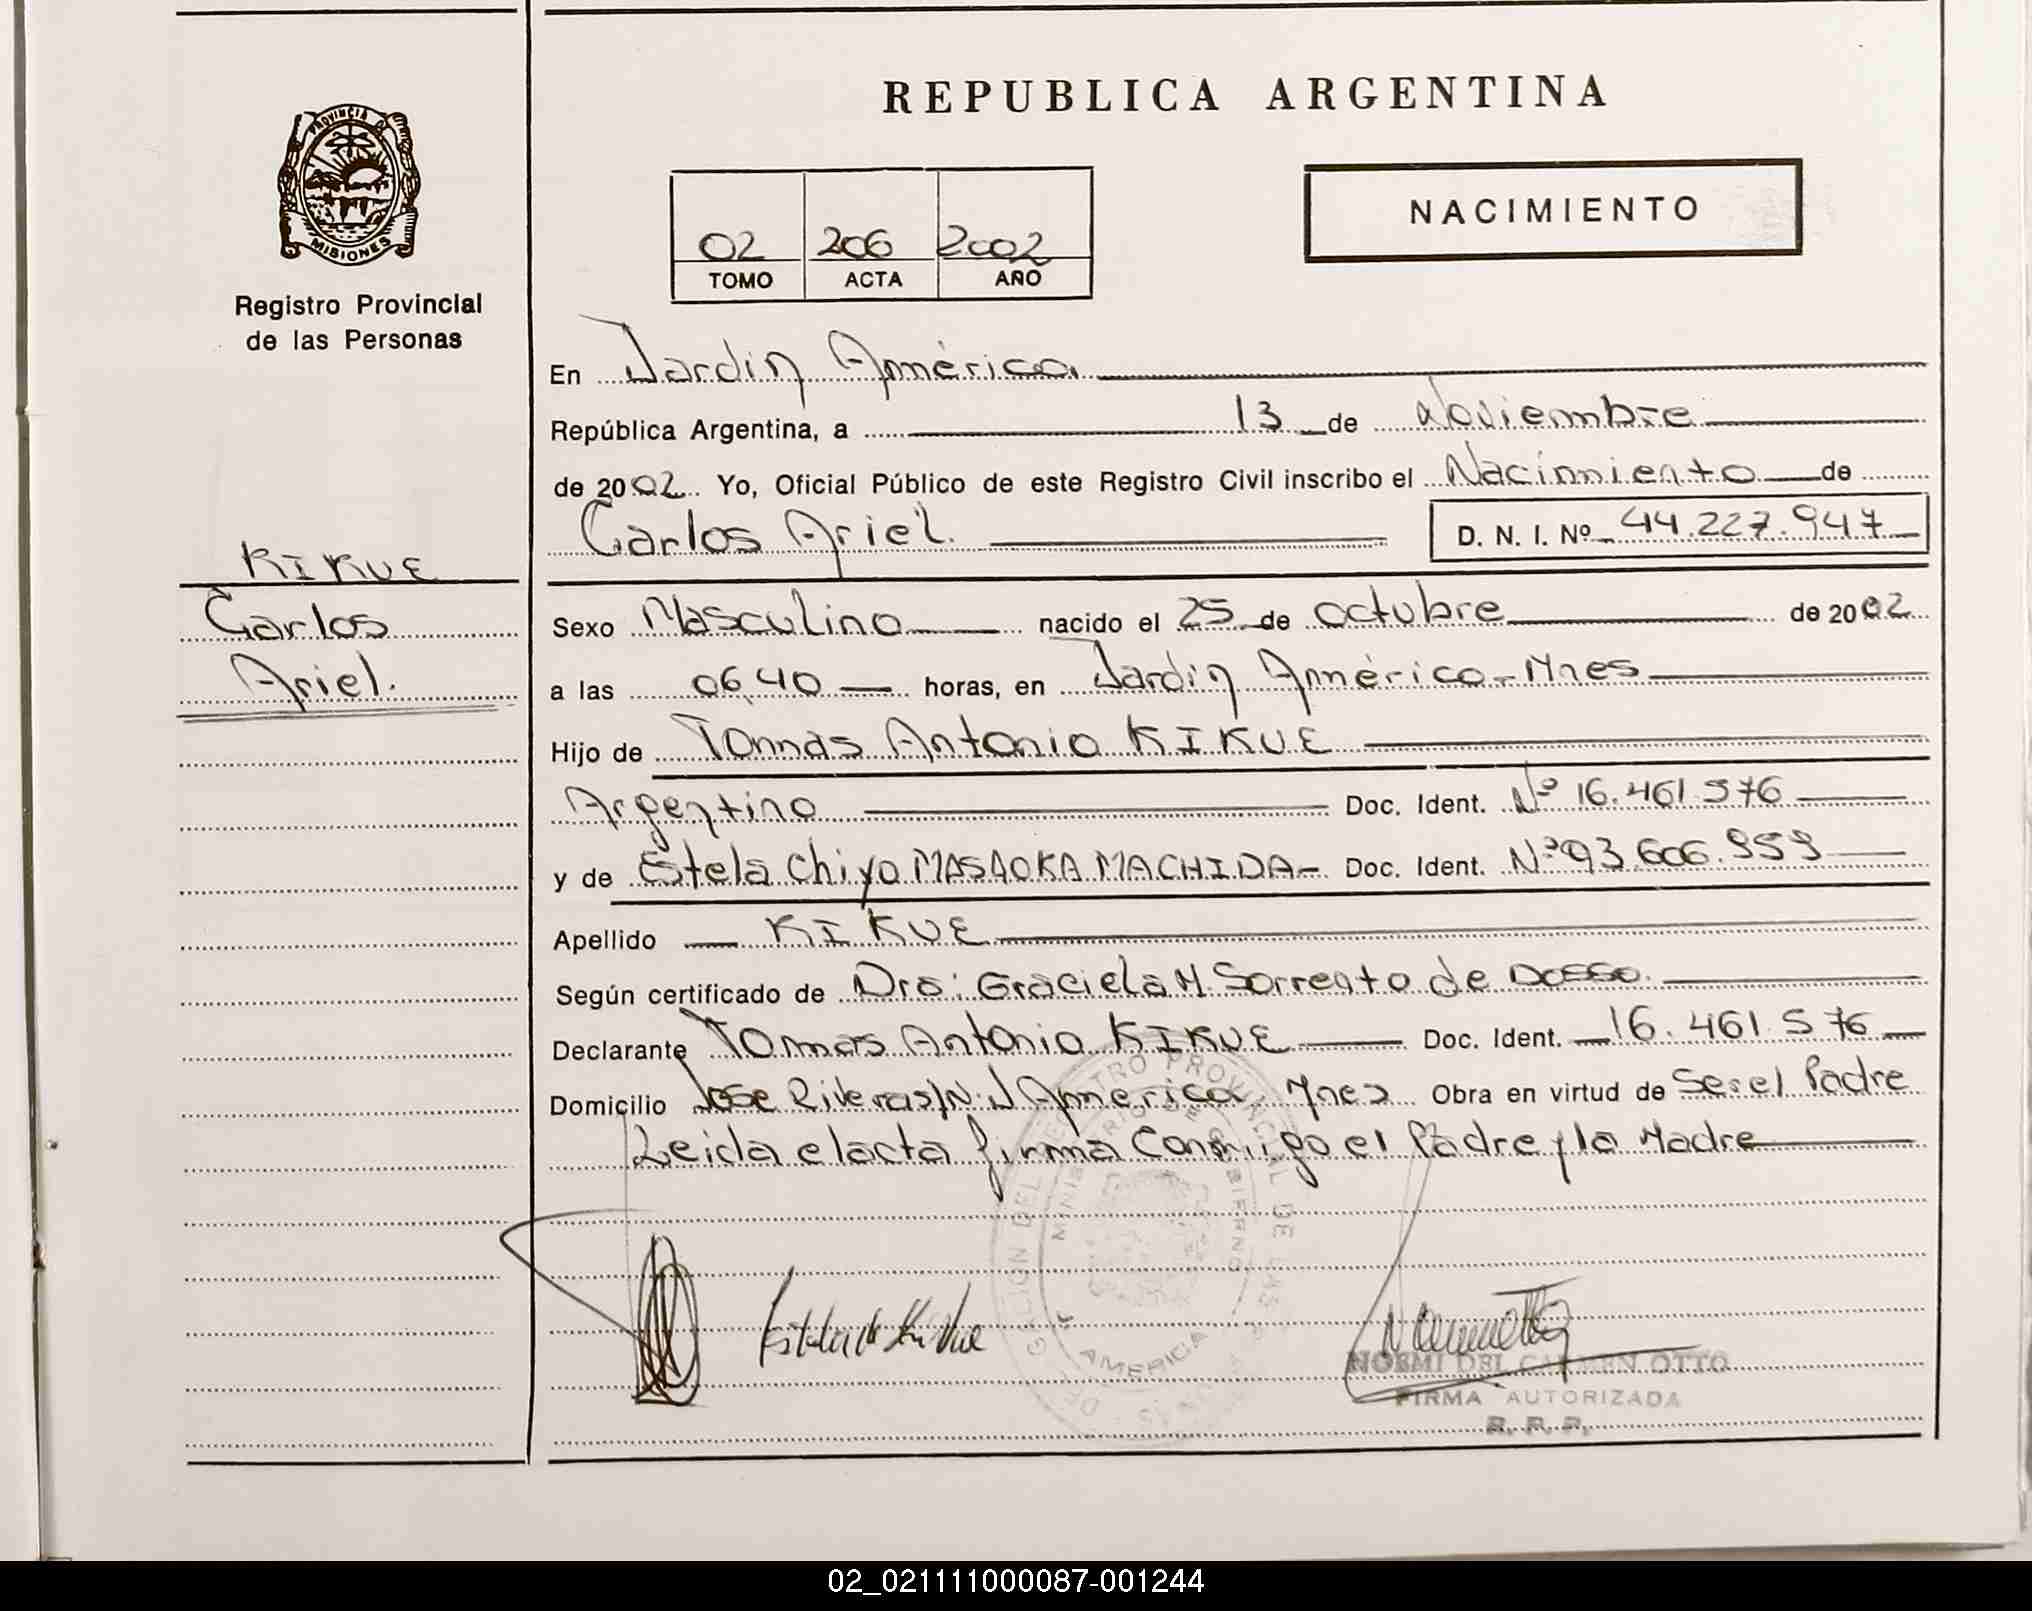 REPUBLICA ARGENTINA
PROVINCIA DE
MISIONES
Registro Provincial
de las Personas
NACIMIENTO
02 206 2002
TOMO ACTA AÑO
En Jardín América
República Argentina, a 13 de Noviembre
de 2002 Yo, Oficial Público de este Registro Civil inscribo el Nacimiento de
Carlos Ariel. D. N. I. Nº 44.227.947
KIKUE
Carlos
Ariel.
Sexo Masculino nacido el 25 de octubre de 2002
a las 06,40 horas, en Jardín América - Mnes
Hijo de Tomas Antonio KIKUE
Argentino Doc. Ident. Nº 16.461.576
y de Estela Chiyo MASAOKA MACHIDA - Doc. Ident. Nº 93.606.959
Apellido KIKUE
Según certificado de Dra: Graciela M. Sorrento de DOSSO.
Declarante Tomas Antonio KIKUE Doc. Ident. 16.461.576
Domicilio Jose Rivera S/N. J América Mnes Obra en virtud de Ser el Padre
Leida el acta firma Conmigo el Padre y la Madre
DELEGACION DEL REGISTRO PROVINCIAL DE LAS PERSONAS
MINISTERIO DE GOBIERNO
AMERICA
NOEMI DEL CARMEN OTTO
FIRMA AUTORIZADA
R. P. P.
02_021111000087-001244